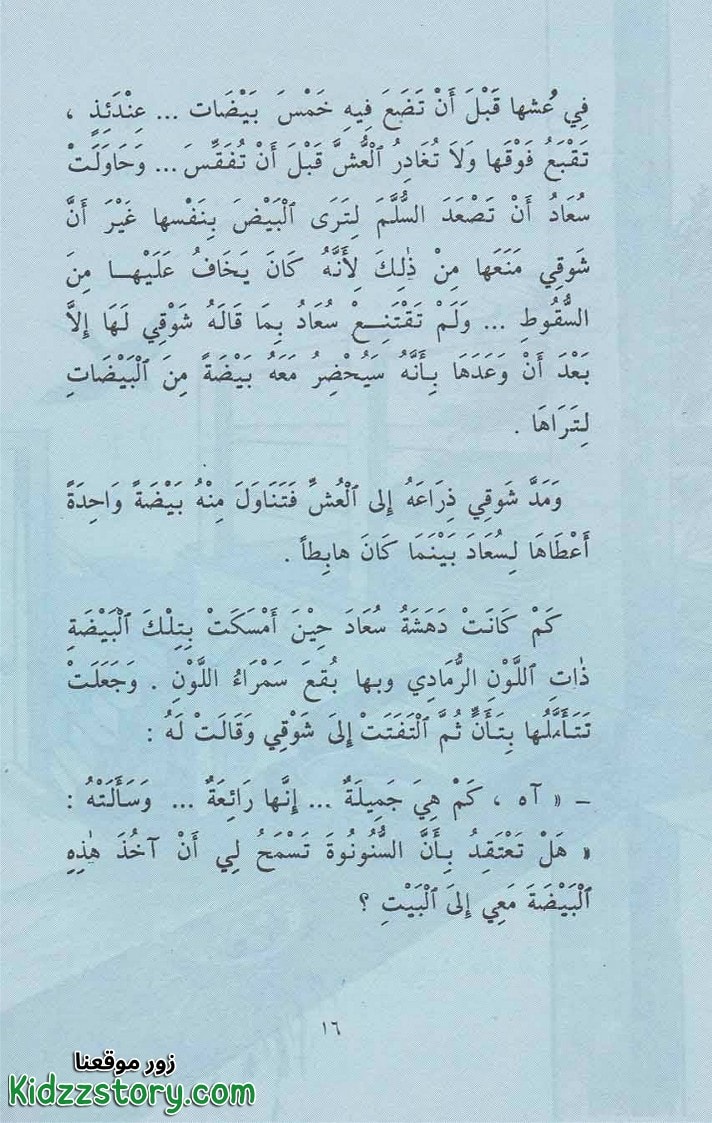 فِي عُشها قَبْلَ أَنْ تَضَعَ فِيهِ خَمْسَ بَيْضَات ... عِنْدَئِذٍ ،
تَقْبَعُ فَوْقَها وَلَا تُغَادِرُ ٱلْعُشَّ قَبْلَ أَنْ تُفَقِّسَ ... وَحَاوَلَتْ
سُعَادُ أَنْ تَصْعَدَ السُّلَّمَ لِتَرَى ٱلْبَيْضَ بِنَفْسها غَيْرَ أَنَّ
شَوقِي مَنَعَها مِنْ ذٰلِكَ لِأَنَّهُ كَانَ يَخَافُ عَلَيْها مِنَ
السُّقُوطِ ... وَلَمْ تَقْتَنِعْ سُعَادُ بِمَا قَالَهُ شَوْقِي لَهَا إِلاَّ
بَعْدَ أَنْ وَعَدَهَا بِأَنَّهُ سَيُحْضِرُ مَعَهُ بَيْضَةً مِنَ ٱلْبَيْضَاتِ
لِتَرَاهَا .
وَمَدَّ شَوقِي ذِرَاعَهُ إِلى ٱلْعُشِّ فَتَنَاوَلَ مِنْهُ بَيْضَةً وَاحِدَةً
أَعْطَاهَا لِسُعَادَ بَيْنَمَا كَانَ هابِطاً .
كَمْ كَانَتْ دَهَشَةُ سُعَادَ حِيْنَ أَمْسَكَتْ بِتِلْكَ ٱلْبَيْضَةِ
ذٰاتِ ٱللَّوْنِ الرُّمَادِي وبها بُقعَ سَمْرَاءُ اللَّوْنِ . وَجَعَلَتْ
تَتَأَمَّلُها بِتَأَنٍّ ثُمَّ ٱلْتَفَتَتْ إِلىَ شَوْقِي وَقَالَتْ لَهُ :
– « آه ، كَمْ هِيَ جَمِيلَةٌ ... إِنَّها رَائِعَةٌ ... وَسَأَلَتْهُ :
« هَلْ تَعْتَقِدُ بِأَنَّ السُّنُونُوةَ تَسْمَحُ لِي أَنْ آخُذَ هٰذِهِ
ٱلْبَيْضَةَ مَعِي إِلىَ ٱلْبَيْتِ ؟
١٦
زور موقعنا
Kidzzstory.com